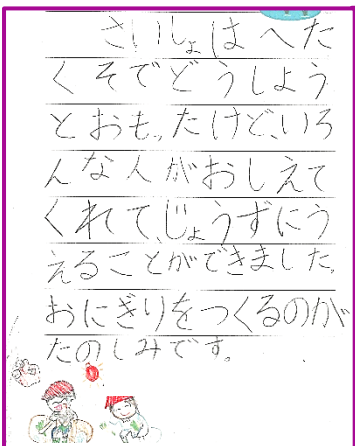 さいしょはへた
くそでどうしよう
とおもったけど、いろ
んな人がおしえて
くれて、じょうずにう
えることができました。
おにぎりをつくるのが
たのしみです。